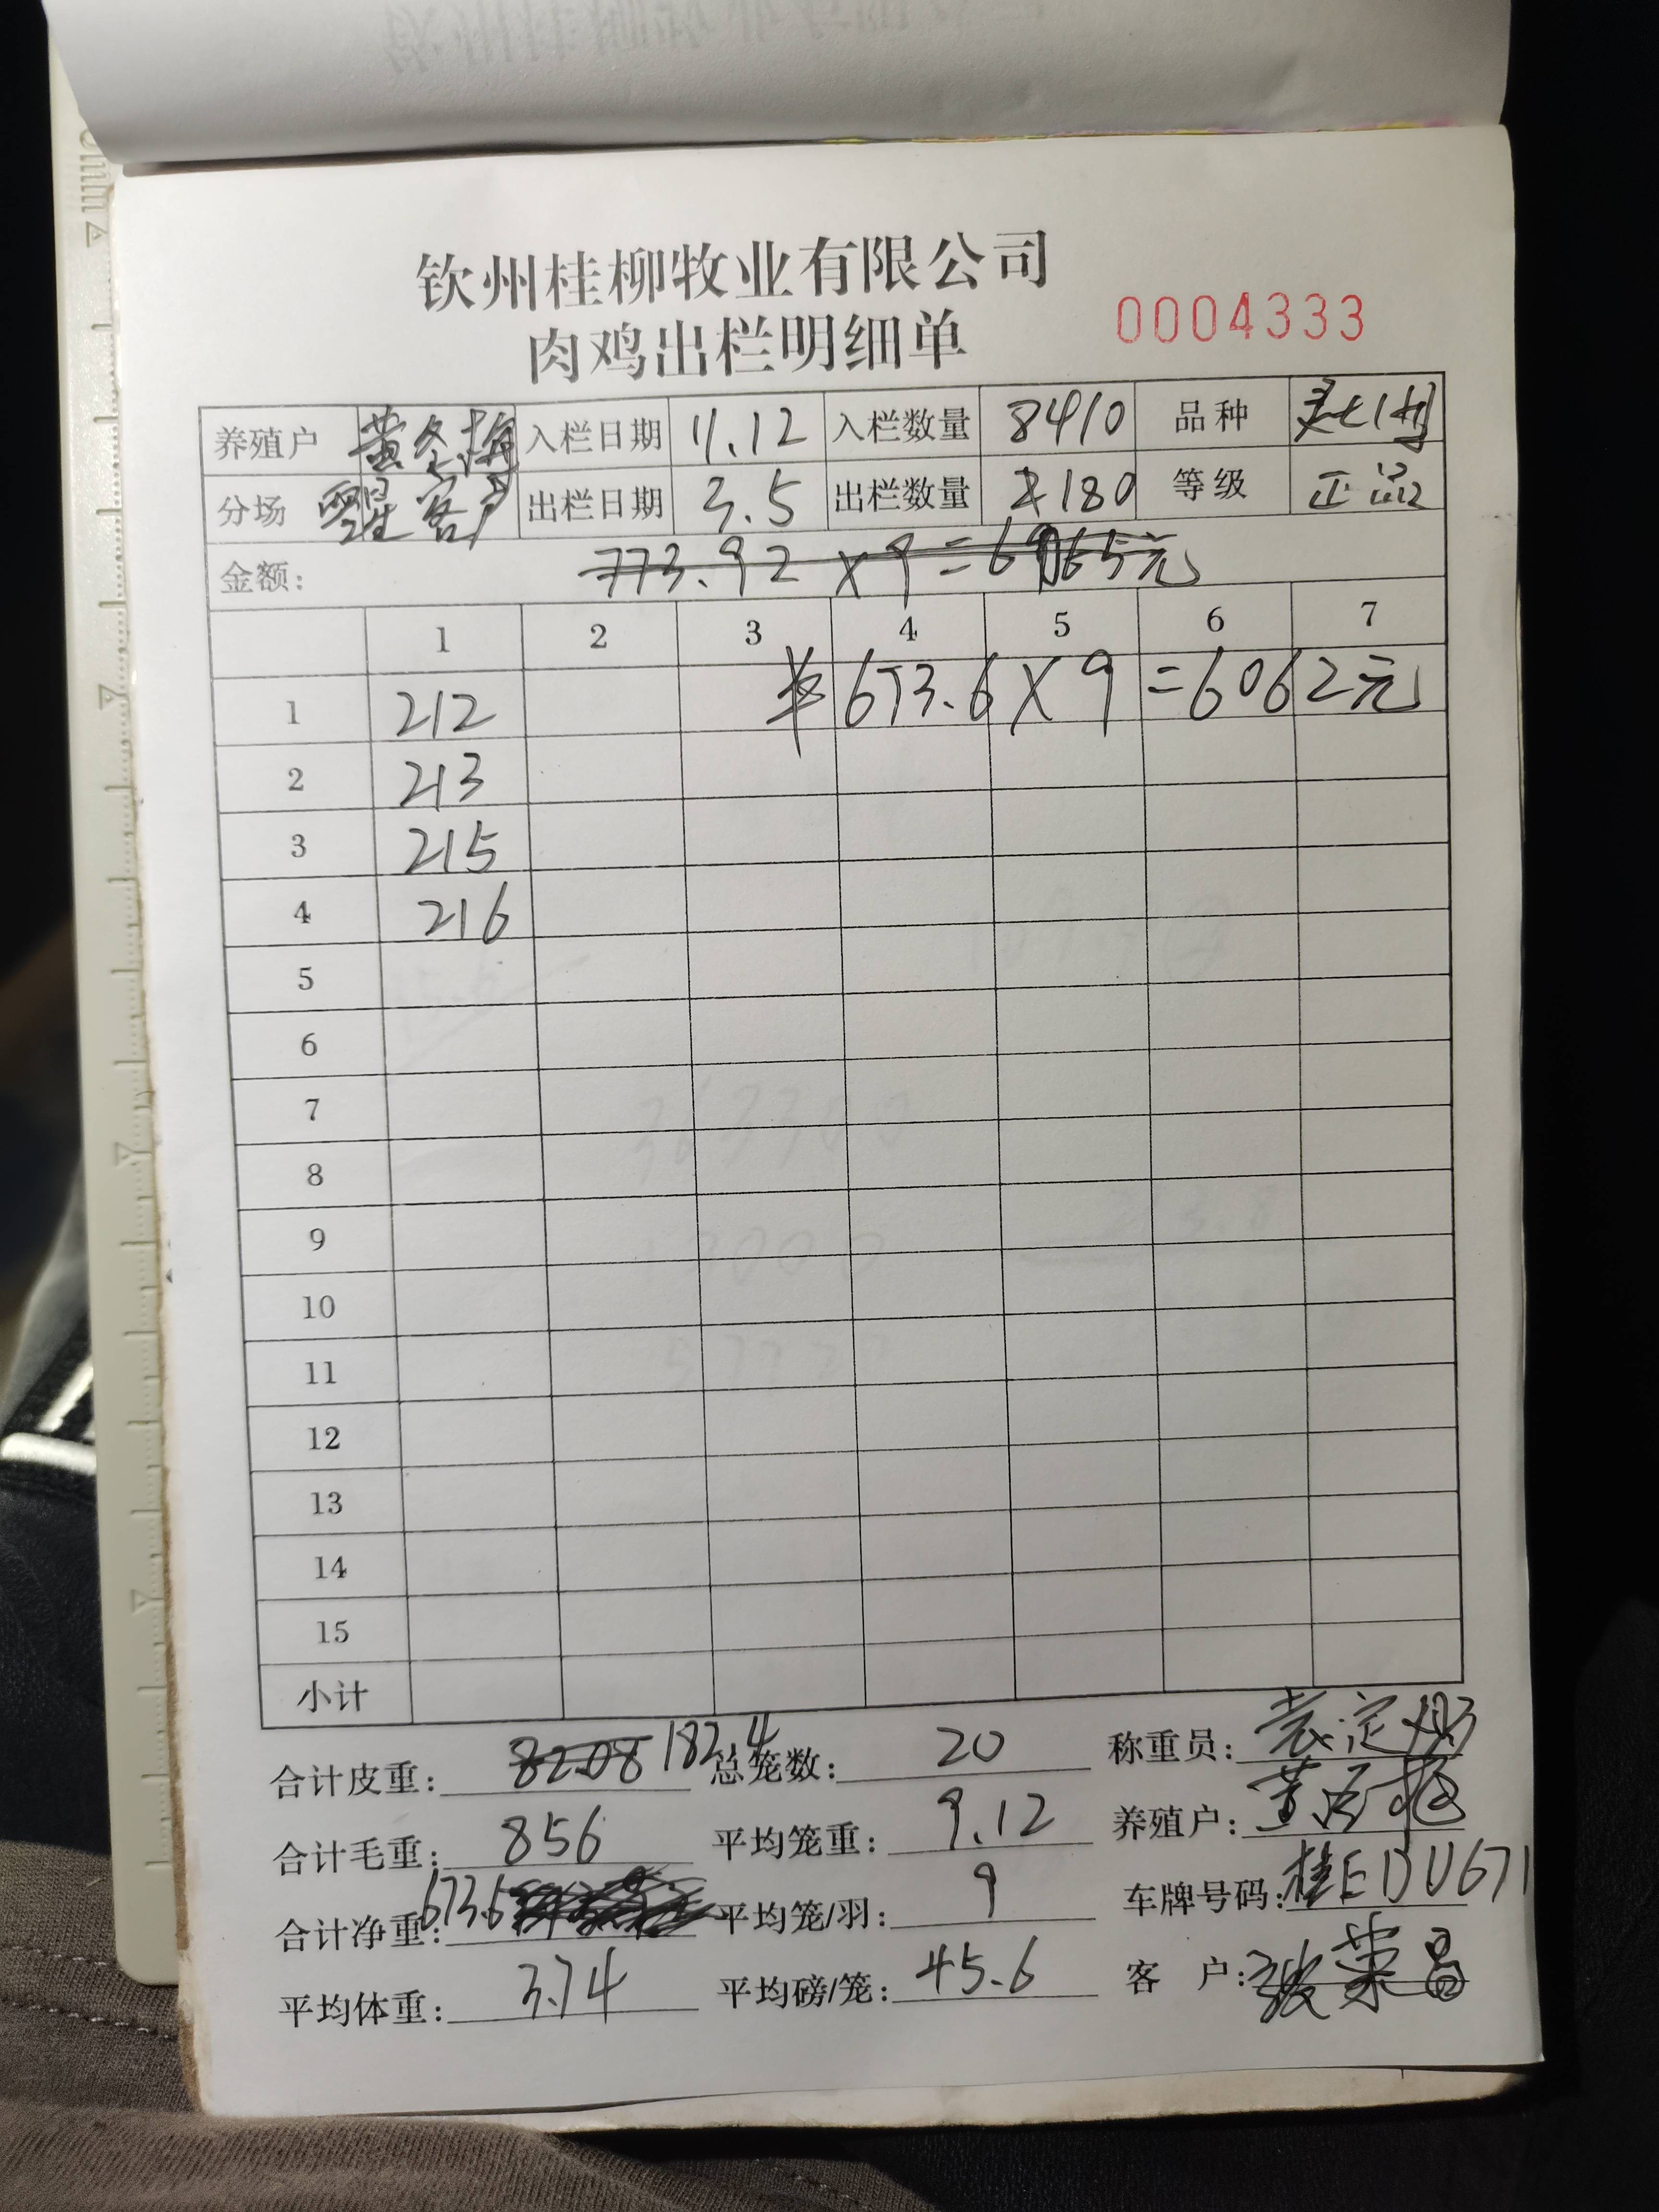 钦州桂柳牧业有限公司
肉鸡出栏明细单 0004333
养殖户 黄冬梅 入栏日期 11.12 入栏数量 8410 品种
分场 客户 出栏日期 3.5 出栏数量 180 等级 正品
金额: 773.92 × 9 = 6965元
1 2 3 4 5 6 7
1 212 673.6 × 9 = 6062元
2 213
3 215
4 216
5
6
7
8
9
10
11
12
13
14
15
小计
合计皮重: 82.08 182.4 总笼数: 20 称重员:
合计毛重: 856 平均笼重: 9.12 养殖户:
合计净重: 673.6 平均笼/羽: 9 车牌号码: 桂EDU671
平均体重: 3.74 平均磅/笼: 45.6 客 户: